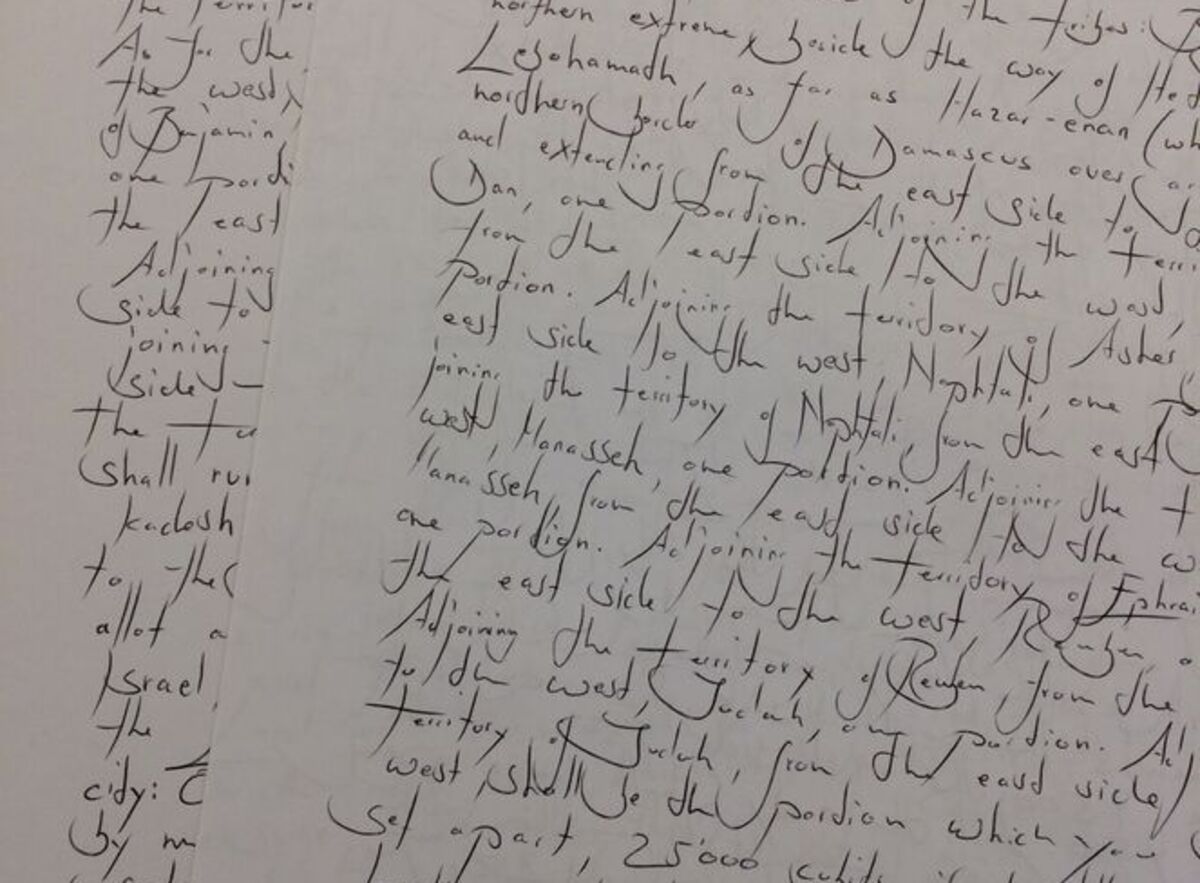 the territor
As for the
the west,
of Benjamin
one porti
the east
Adjoining
side to
joining
side –
the
shall run
kadesh
to the
allot a
Israel
the
city:
by m
of the tribes:
northern extreme, beside the way of Het
Lebohamath, as far as Hazar-enan (wh
northern border of Damascus over
and extending from the east side to
Dan, one portion. Adjoining the terri
from the east side to the west,
portion. Adjoining the territory of Asher
east side to the west, Naphtali, one
joining the territory of Naphtali, from the east
west, Manasseh, one portion. Adjoining the t
Manasseh, from the east side to the w
one portion. Adjoining the territory of Ephrai
the east side to the west, Reuben, o
Adjoining the territory of Reuben, from the
to the west, Judah, one portion. Ad
territory of Judah, from the east side
west, shall be the portion which you
set apart, 25'000 cubits